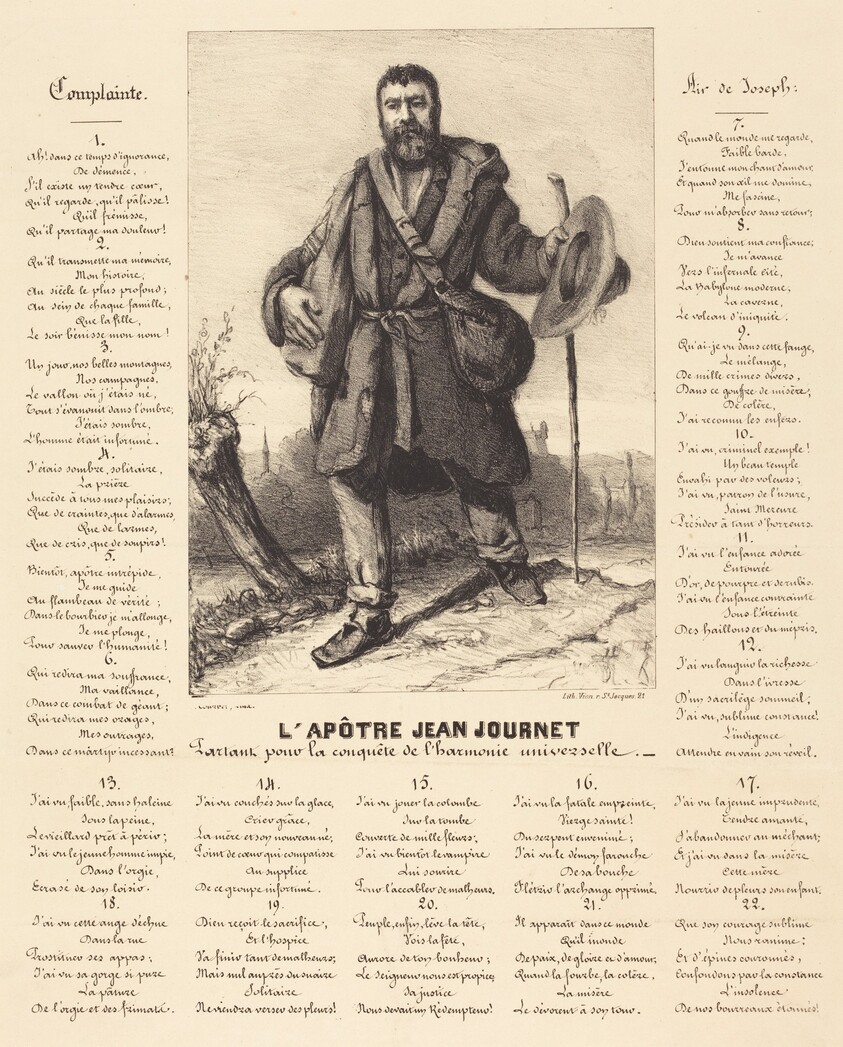 Complainte.
1.
Ah! dans ce temps d'ignorance,
De démence,
S'il existe un tendre cœur,
Qu'il regarde, qu'il pâlisse!
Qu'il frémisse,
Qu'il partage ma douleur!
2.
Qu'il transmette ma mémoire,
Mon histoire,
Au siècle le plus profond;
Au sein de chaque famille,
Que la fille,
Le soir bénisse mon nom!
3.
Un jour, nos belles montagnes,
Nos campagnes,
Le vallon où j'étais né,
Tout s'évanouit dans l'ombre;
J'étais sombre,
L'homme était infortuné.
4.
J'étais sombre, solitaire,
La prière
Succède à tous mes plaisirs;
Que de craintes, que d'alarmes,
Que de larmes,
Que de cris, que de soupirs!
5.
Bientôt, apôtre intrépide,
Je me guide
Au flambeau de vérité;
Dans le bourbier je m'allonge,
Je me plonge,
Pour sauver l'humanité!
6.
Qui redira ma souffrance,
Ma vaillance,
Dans ce combat de géant;
Qui redira mes orages,
Mes ouvrages,
Dans ce martyr incessant?
Air de Joseph:
7.
Quand le monde me regarde,
Faible barde,
J'entonne mon chant d'amour,
Et quand son œil me domine,
Me fascine,
Pour m'absorber sans retour;
8.
Dieu soutient ma confiance;
Je m'avance
Vers l'infernale cité,
La Babylone moderne,
La caverne,
Le volcan d'iniquité.
9.
Qu'ai-je vu dans cette fange,
Le mélange,
De mille crimes divers.
Dans ce gouffre de misère,
De colère,
J'ai reconnu les enfers.
10.
J'ai vu, criminel exemple!
Un beau temple
Envahi par des voleurs;
J'ai vu, patron de l'usure,
Saint Mercure
Présider à tant d'horreurs.
11.
J'ai vu l'enfance adorée
Entourée
D'or, de pourpre et de rubis.
J'ai vu l'enfance contrainte
Sous l'étreinte
Des haillons et du mépris.
12.
J'ai vu languir la richesse
Dans l'ivresse
D'un sacrilège sommeil;
J'ai vu, sublime constance!
L'indigence
Attendre en vain son réveil.
Courbet,
Lith. Vion r. St Jacques 21
L'APÔTRE JEAN JOURNET
Partant pour la conquête de l'harmonie universelle.
13.
J'ai vu, faible, sans haleine
Sous la peine,
Le vieillard prêt à périr;
J'ai vu le jeune homme impie,
Dans l'orgie,
Écrasé de son loisir.
14.
J'ai vu couchés sur la glace,
Crier grâce,
La mère et son nouveau né;
Point de cœur qui compatisse
Au supplice
De ce groupe infortuné.
15.
J'ai vu jouer la colombe
Sur la tombe
Couverte de mille fleurs;
J'ai vu bientôt le vampire
Lui sourire
Pour l'accabler de malheurs.
16.
J'ai vu la fatale empreinte,
Vierge sainte!
Du serpent envenimé;
J'ai vu le démon farouche
De sa bouche
Flétrir l'archange opprimé.
17.
J'ai vu la jeune imprudente,
Tendre amante,
S'abandonner au méchant;
Et j'ai vu dans la misère
Cette mère
Nourrir de pleurs son enfant.
18.
J'ai vu cette ange déchue
Dans la rue
Prostituer ses appas;
J'ai vu sa gorge si pure
La pâture
De l'orgie et des frimats.
19.
Dieu reçoit le sacrifice,
Et l'hospice
Va finir tant de malheurs;
Mais nul auprès du suaire
Solitaire
Ne viendra verser des pleurs!
20.
Peuple, enfin, lève ta tête,
Vois la fête,
Aurore de ton bonheur;
Le Seigneur nous est propice,
Sa justice
Nous devait un Rédempteur!
21.
Il apparaît dans ce monde
Qu'il inonde
De paix, de gloire et d'amour;
Quand la fourbe, la colère,
La misère
Le dévorent à son tour.
22.
Que son courage sublime
Nous ranime;
Et d'épines couronnés,
Confondons par la constance
L'insolence
De nos bourreaux étonnés!